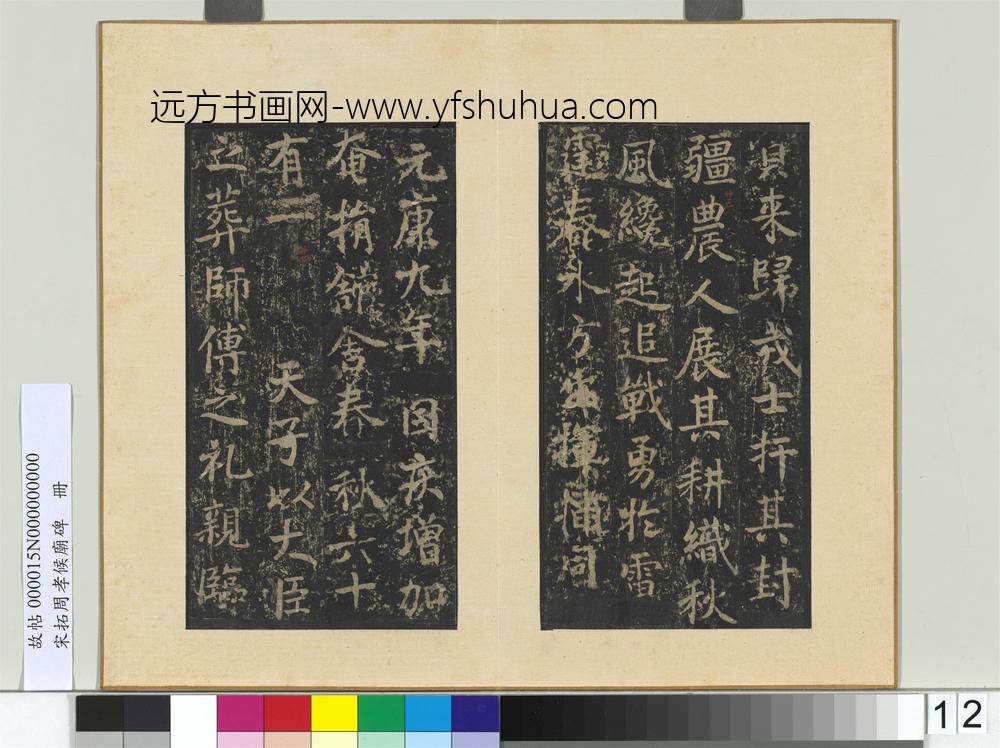 远方书画网-www.yfshuhua.com
來歸戎士扞其封
疆農人展其耕織秋
風纔起追戰勇於雷
霆春永方揮
元康九年因疾增加
奄捐舘舍春秋六十
有二天子以大臣
之葬師傅之礼親臨
故帖000015N000000000
宋拓周孝候廟碑 冊
12